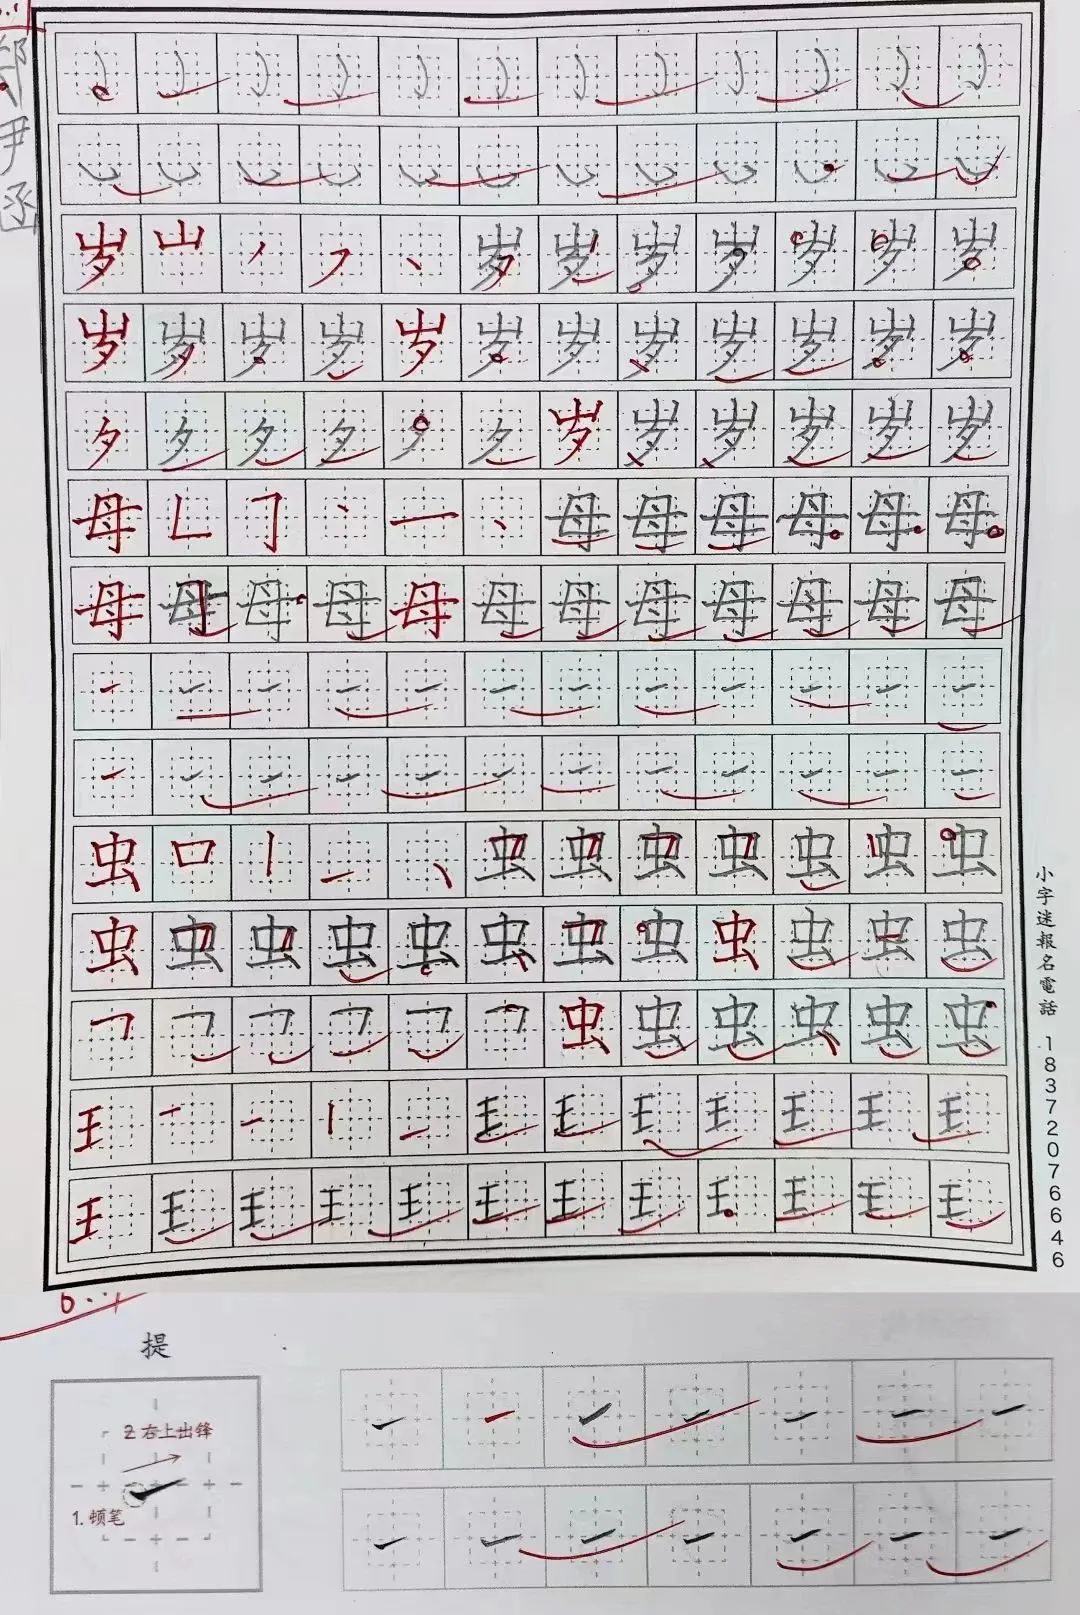 郑尹函
岁 山 ㇒ ㇇ 丶 岁 岁 岁 岁 岁 岁 岁
岁 岁 岁 岁 岁 岁 岁 岁 岁 岁 岁 岁
夕 夕 夕 夕 夕 夕 岁 岁 岁 岁 岁 岁
母 ㇄ ㇆ 丶 一 丶 母 母 母 母 母 母
母 母 母 母 母 母 母 母 母 母 母 母
虫 口 丨 ㇀ 丶 虫 虫 虫 虫 虫 虫 虫
虫 虫 虫 虫 虫 虫 虫 虫 虫 虫 虫 虫
㇆ ㇆ ㇆ ㇆ ㇆ ㇆ 虫 虫 虫 虫 虫 虫
王 一 一 丨 ㇀ 王 王 王 王 王 王 王
王 王 王 王 王 王 王 王 王 王 王 王
小字迷報名電話 18372076646
提
2 右上出锋
1. 顿笔